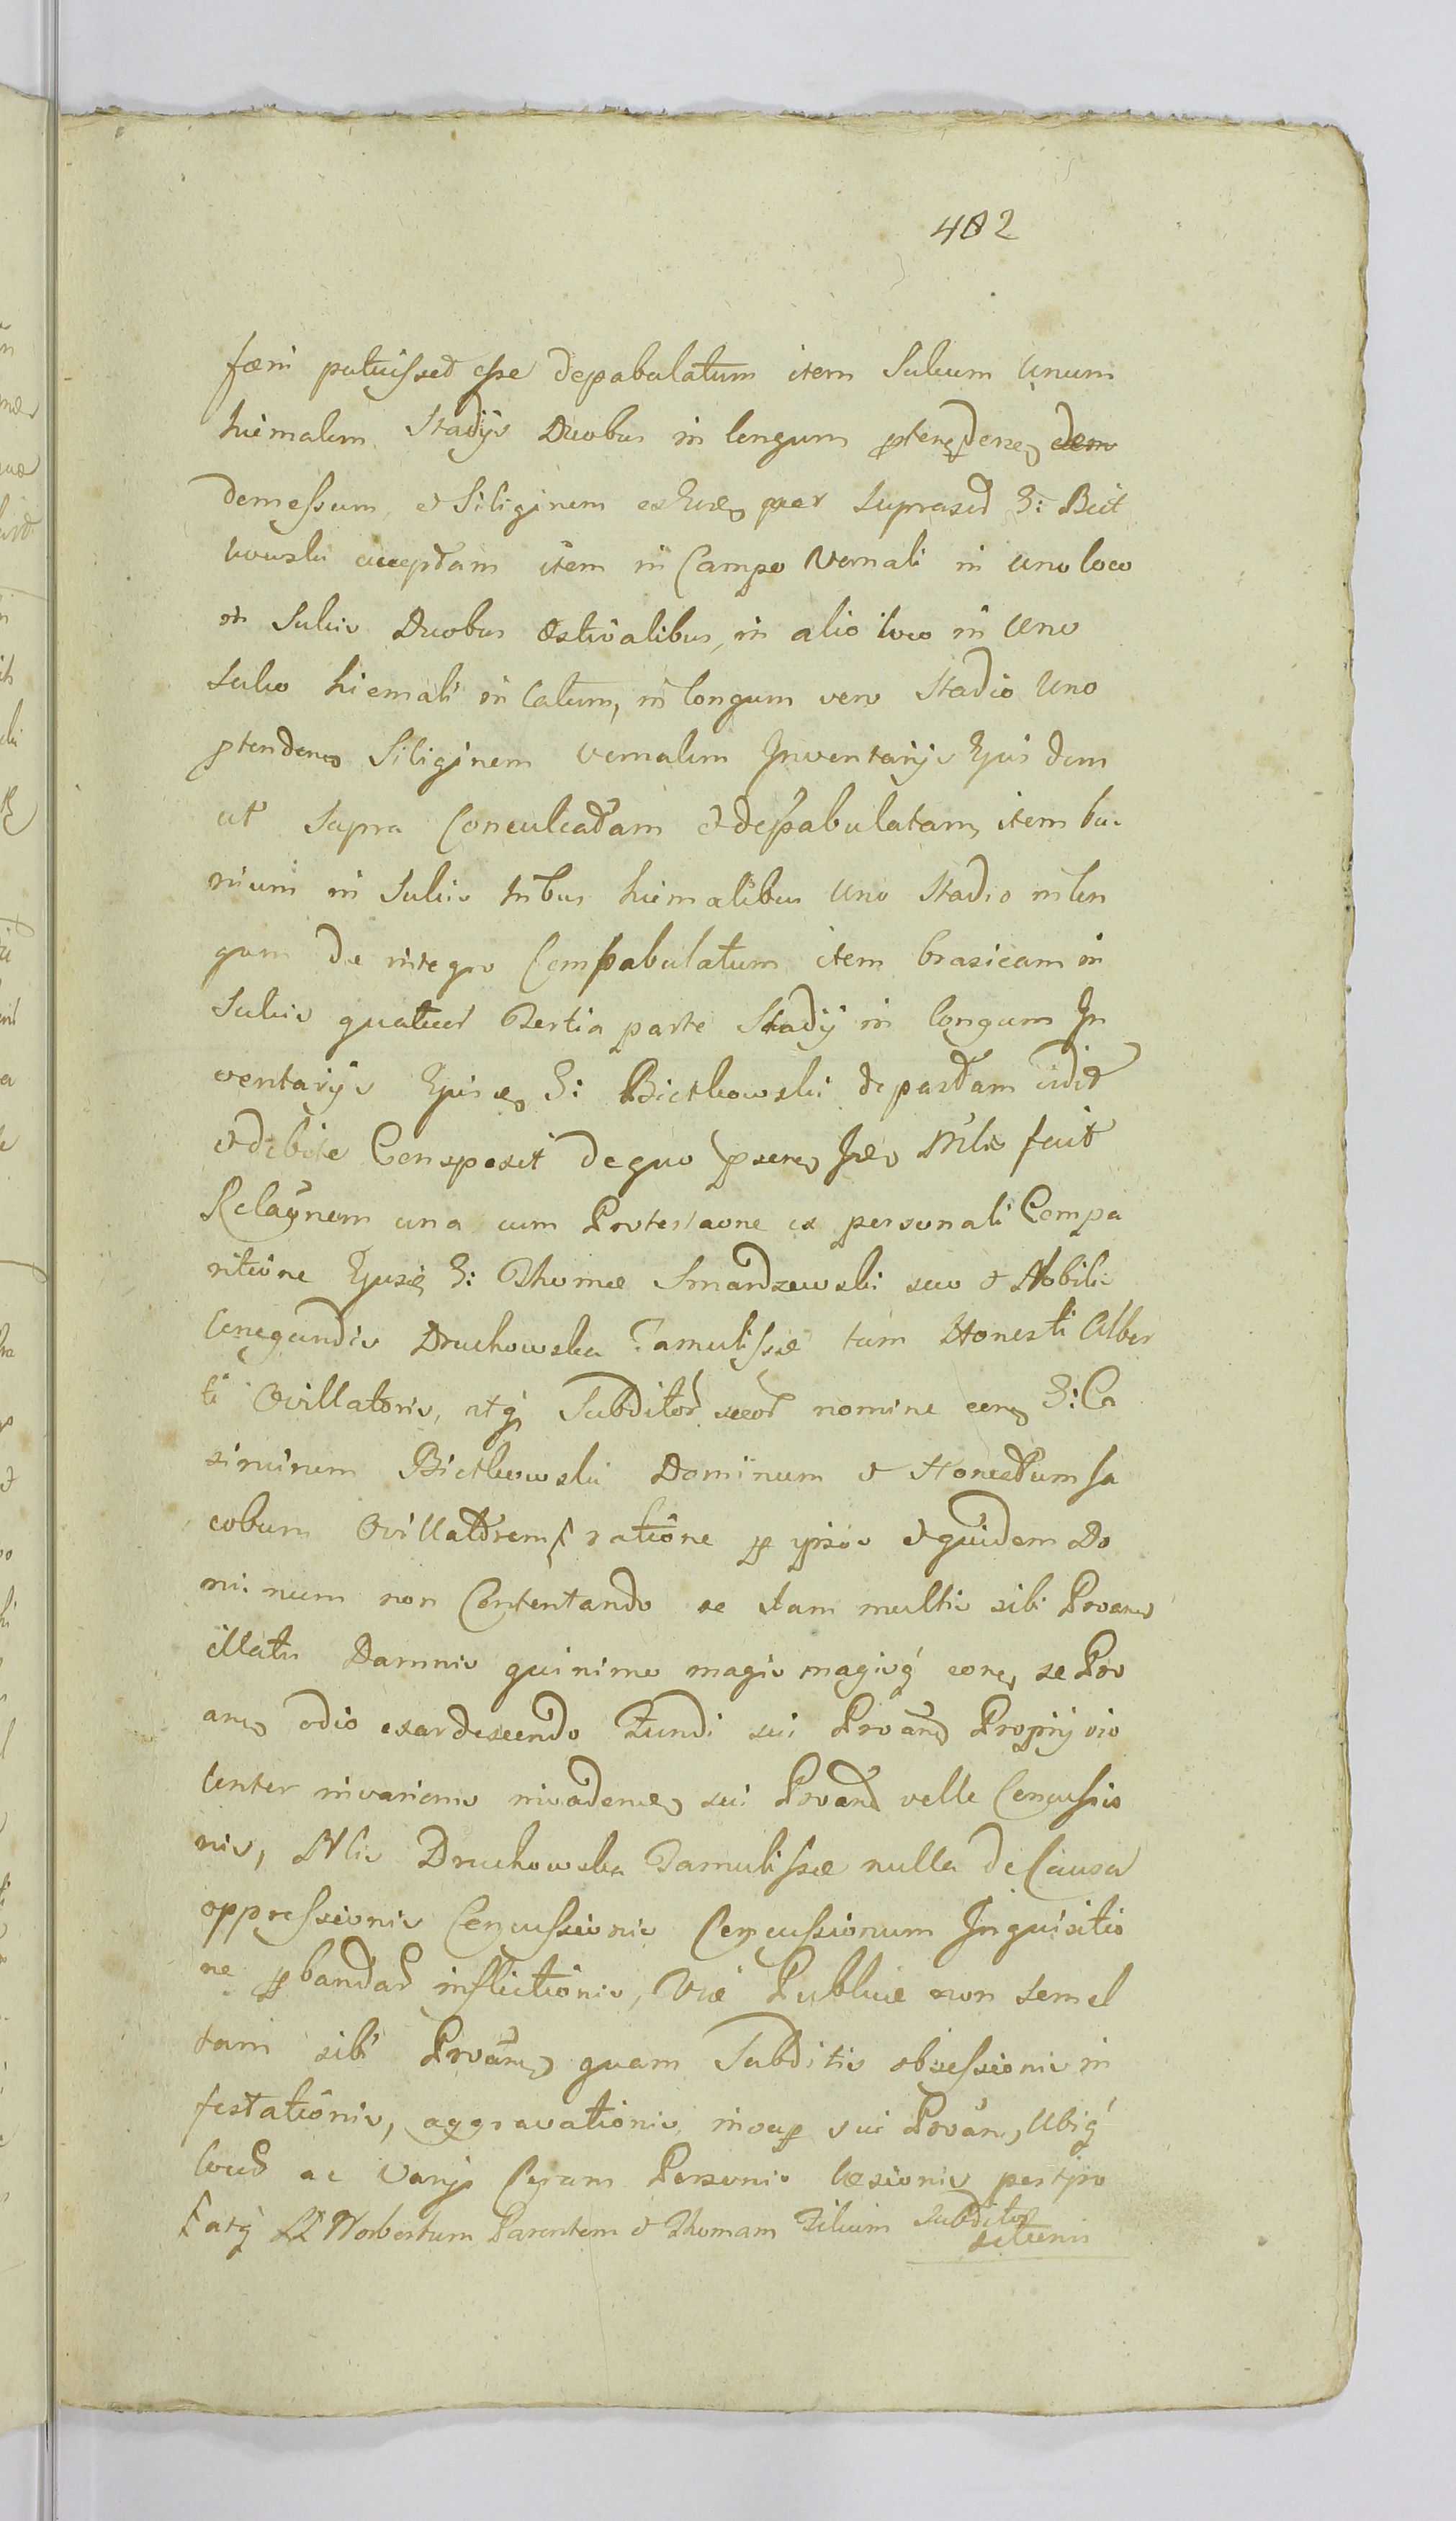 402
fœni patuisset esse depabulatum item Sulcum Unum
hiemalem Stadijs Duobus in longum
demessum et Siliginem per Suprascd G: Biet
kowski acceptam item in Campo Vernali in uno loco
in Sulcis Duobus Æstivalibus, in alio loco in Uno
Sulco hiemali in latum, in longum vero Stadio Uno
ptenden Siliginem vernalem Inventarijs Ejusdem
ut Supra Conculcatam et depabulatam, item
in Sulcis tribus hiemalibus Uno Stadio in lon
gum de integro Compabulatum item brasicam in
Sulcis quatuor Tertia parte Stadij in longum In
ventarijs G: Bietkowski depastam vidit
et debite Conspexit de quo fecit
Relaõnem una cum Protestaone ex personali Compa
ritione G: Thomæ Smardzewski suo et Nobilis
Cunegundis Druchowska Famulissæ tum Honesti Alber
ti Ovillatoris, atq Subditor suor nomine G: Ca
simirum Bietkowski Dominum et Honestum Ja
cobum Ovillatorem ratione et quidem Do
minum non Contentando se tam multis sibi
illatis Damnis quinimo magis magisq se Pro
odio exardescendo Fundi sui Proañ Proprij vio
lenter sui Proañ velle Concussio
nis, Druchowska Famulissæ nulla de Causa
oppressionis Concussionis Inquisitio
ne inflictionis, Viæ Publicæ non semel
tam sibi Proañ quam Subditis obsessionis in
festationis, aggravationis, sui Proañ, Ubiq
ac Varijs Coram Personis læsionis
atq Norbertum Parentem et Thomam Filium Subditos